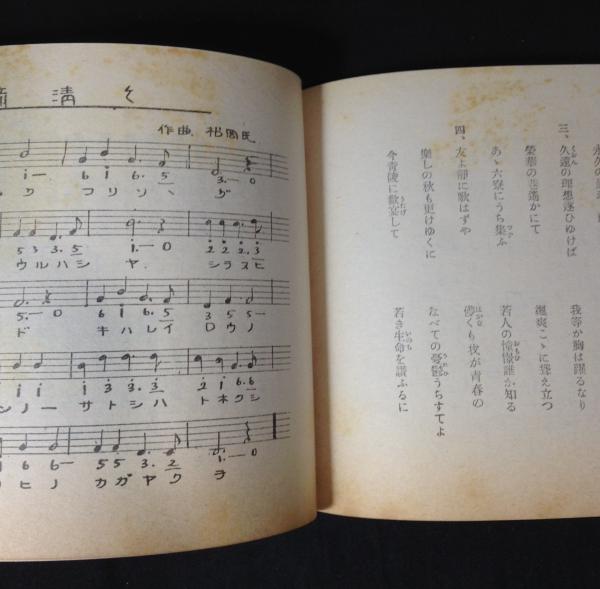 清く
作曲
i— 6 i 6. 5 3.— 0
ク フリソヽ グ
5 3 3. 5 i.— 0 2 2 2. 3
ウルハシ ヤ シラスヒ
5.— 0 6 i 6. 5 3 5 0
ド キハレイ ロウノ
i i i 3. 3. 2 i 6. 6
ンノー サトシハ トネクシ
6 6— 5 5 3. 2 1.— 0
ヒノ カガヤク ヲ
永久の
三、久遠の理想逐ひゆけば
我等が胸は躍るなり
榮華の巷遙かにて
颯爽こゝに聳え立つ
あゝ六寮にうち集ふ
若人の憧憬誰か知る
四、友よ靜に歌はずや
儚くも我が青春の
樂しの秋も更けゆくに
なべての憂鬱うちすてよ
今青陵に歡宴して
若き生命を讚ふるに